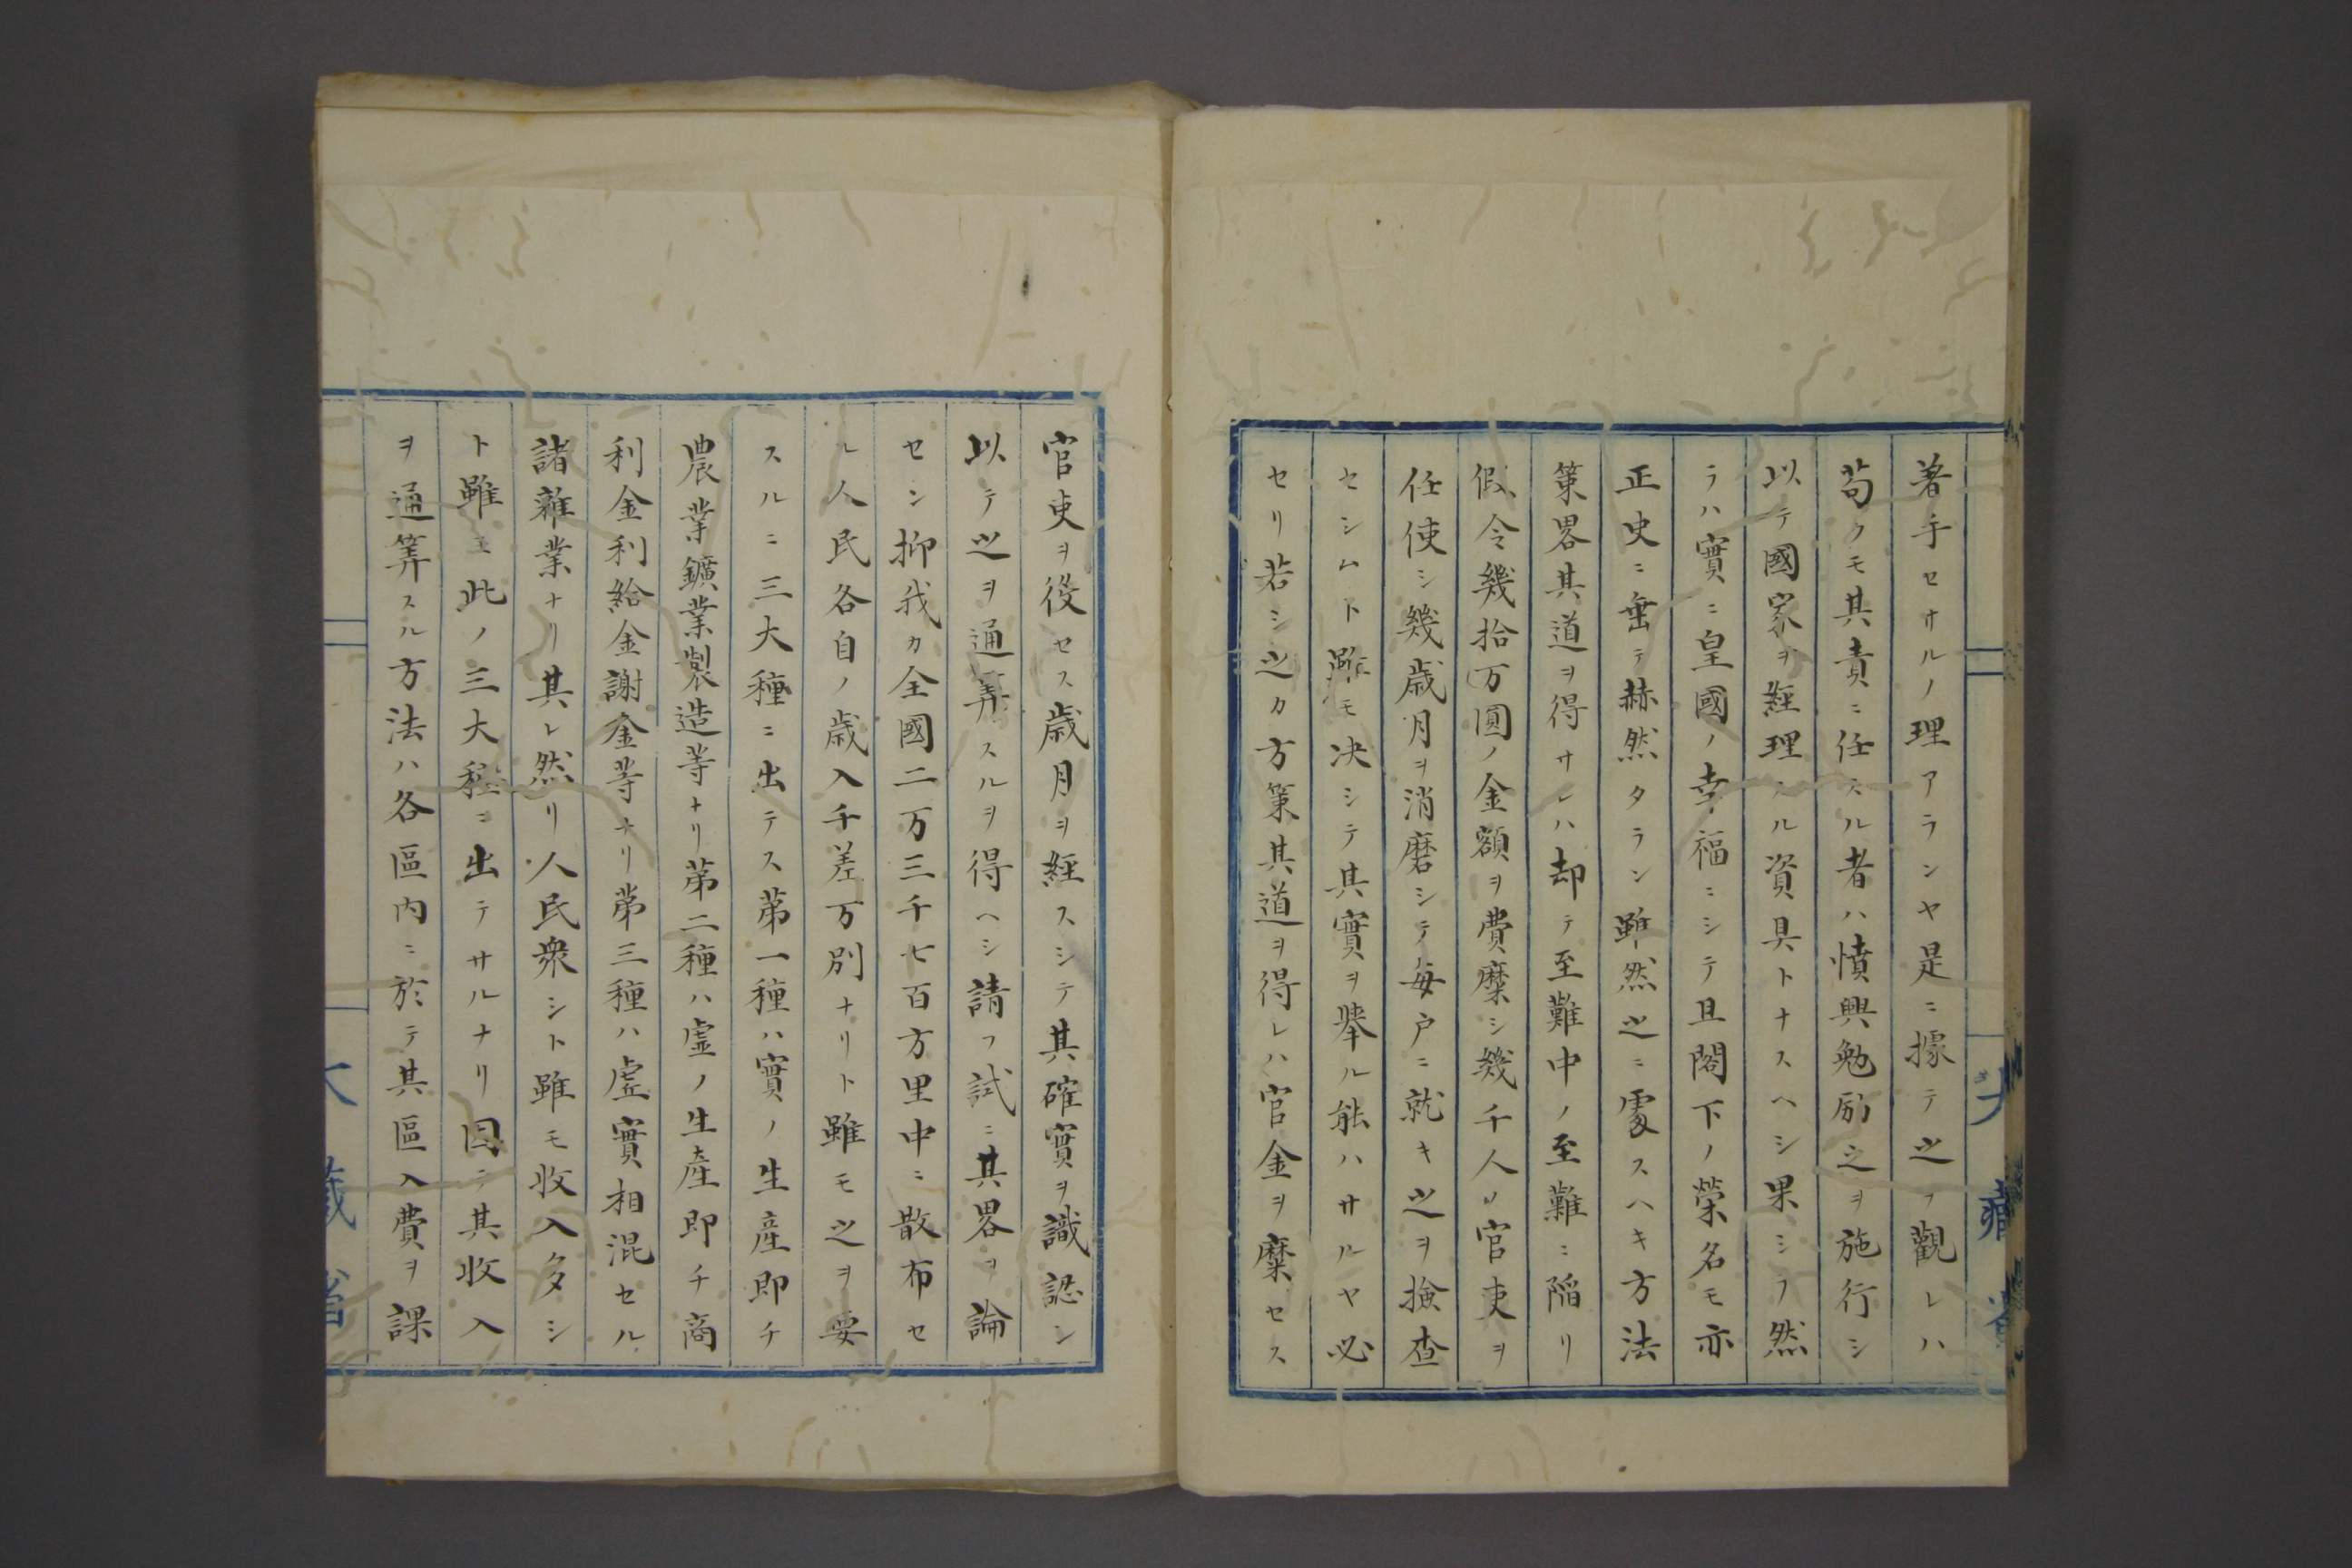 著手セサルノ理アランヤ是ニ據テ之ヲ觀レハ
苟クモ其責ニ任スル者ハ憤興勉励之ヲ施行シ
以テ國家ヲ經理スル資具トナスヘシ果シテ然
ラハ實ニ皇國ノ幸福ニシテ且閣下ノ榮名モ亦
正史ニ垂テ赫然タラン雖然之ニ處スヘキ方法
策畧其道ヲ得サレハ却テ至難中ノ至難ニ陥リ
假令幾拾万圓ノ金額ヲ費糜シ幾千人ノ官吏ヲ
任使シ幾歳月ヲ消磨シテ毎戸ニ就キ之ヲ撿査
セシムト雖モ决シテ其實ヲ擧ル能ハサルヤ必
セリ若シ之カ方策其道ヲ得レハ官金ヲ糜セス
大藏省
官吏ヲ役セス歳月ヲ経スシテ其確實ヲ識認シ
以テ之ヲ通筭スルヲ得ヘシ請フ試ニ其畧ヲ論
セン抑我カ全國二万三千七百方里中ニ散布セ
ル人民各自ノ歳入千差万別ナリト雖モ之ヲ要
スルニ三大種ニ出テス第一種ハ實ノ生産即チ
農業鑛業製造等ナリ第二種ハ虚ノ生産即チ商
利金利給金謝金等ナリ第三種ハ虚實相混セル
諸雜業ナリ其レ然リ人民衆シト雖モ收入夛シ
ト雖モ此ノ三大種ニ出テサルナリ因テ其收入
ヲ通筭スル方法ハ各區内ニ於テ其區入費ヲ課
大藏省